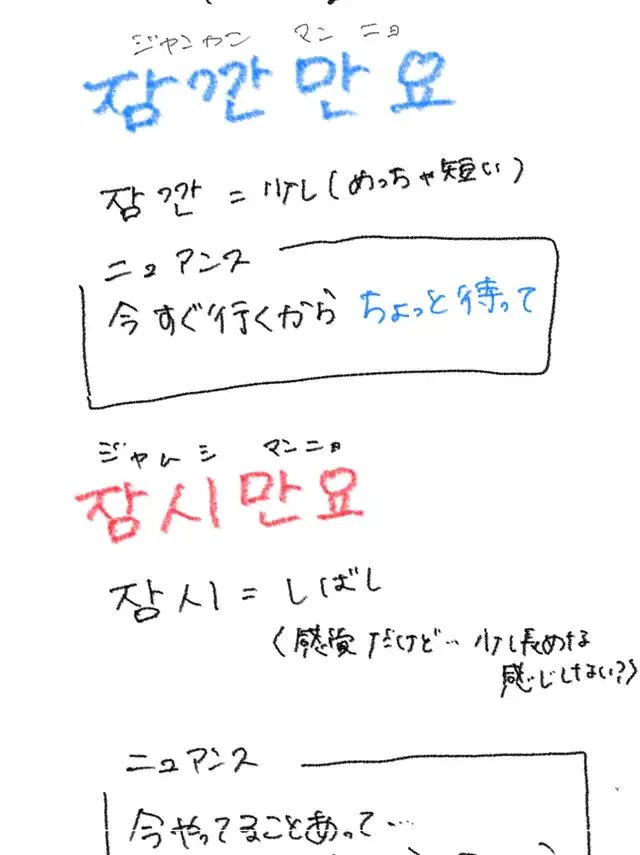 ジャンカン マンニョ
잠깐만요
잠깐 = 少し(めっちゃ短い)
ニュアンス
今すぐ行くから ちょっと待って
ジャムシ マンニョ
잠시만요
잠시 = しばし
(感覚だけど… 少し長めな
感じしない?)
ニュアンス
今やってることあって…